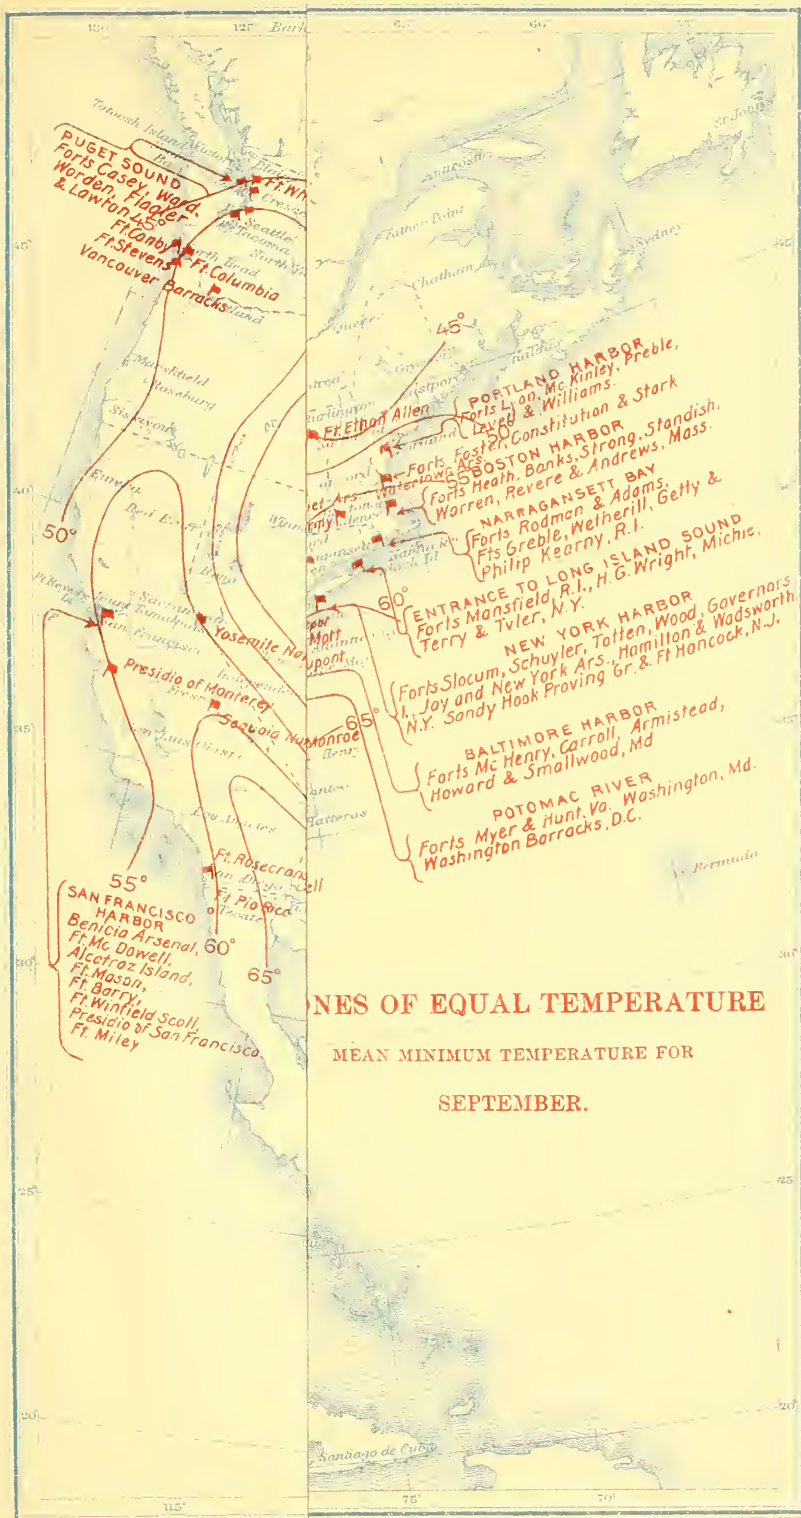 130°
125°
65°
60°
55°
St Johns
Tatoosh Island
Victoria
PUGET SOUND
Forts Casey, Ward,
Worden, Flagler
& Lawton
45°
Ft. Wh
Seattle
Tacoma
North Head
Ft. Canby
Ft. Stevens
Ft. Columbia
Vancouver Barracks
45°
Marshfield
Roseburg
Siskiyou
Eureka
40°
50°
Red
Reno
Winn
Pt Reyes Lt
Mount Tamalpais
Sacramento
San Francisco
Yosemite Na
Presidio of Monterey
Independ
Fresno
Sequoia Na
San Luis Obispo
35°
Los Angeles
55°
Ft. Rosecrans
San Diego
Ft Pio Rico
60°
65°
SAN FRANCISCO
HARBOR
Benicia Arsenal,
Ft. Mc Dowell,
Alcatroz Island,
Ft. Mason,
Ft. Barry,
Ft. Winfield Scott,
Presidio of San Francisco
Ft. Miley
30°
25°
20°
115°
Anticosti
Father Point
Sydney
Chatham
Quebec
45°
45°
Eastport
Halifax
Ft. Ethan Allen
PORTLAND HARBOR
Forts Lyon, Mc Kinley, Preble,
Levett & Williams.
50°
Forts Foster, Constitution & Stark
Watertown Ars.
55°
BOSTON HARBOR
Forts Heath, Banks, Strong, Standish,
Warren, Revere & Andrews, Mass.
NARRAGANSETT BAY
Forts Rodman & Adams,
Fts Greble, Wetherill, Getty &
Philip Kearny, R.I.
60°
ENTRANCE TO LONG ISLAND SOUND
Forts Mansfield, R.I., H.G. Wright, Michie,
Terry & Tyler, N.Y.
NEW YORK HARBOR
Forts Slocum, Schuyler, Totten, Wood, Governors
I., Jay and New York Ars., Hamilton & Wadsworth
N.Y. Sandy Hook Proving Gr. & Ft Hancock, N.J.
Mott
upont
65°
Monroe
Henry
BALTIMORE HARBOR
Forts Mc Henry, Carroll, Armistead,
Howard & Smallwood, Md
Hatteras
POTOMAC RIVER
Forts Myer & Hunt, Va. Washington, Md.
Washington Barracks, D.C.
Bermuda
30°
NES OF EQUAL TEMPERATURE
MEAN MINIMUM TEMPERATURE FOR
SEPTEMBER.
25
20°
Santiago de Cuba
75°
70°